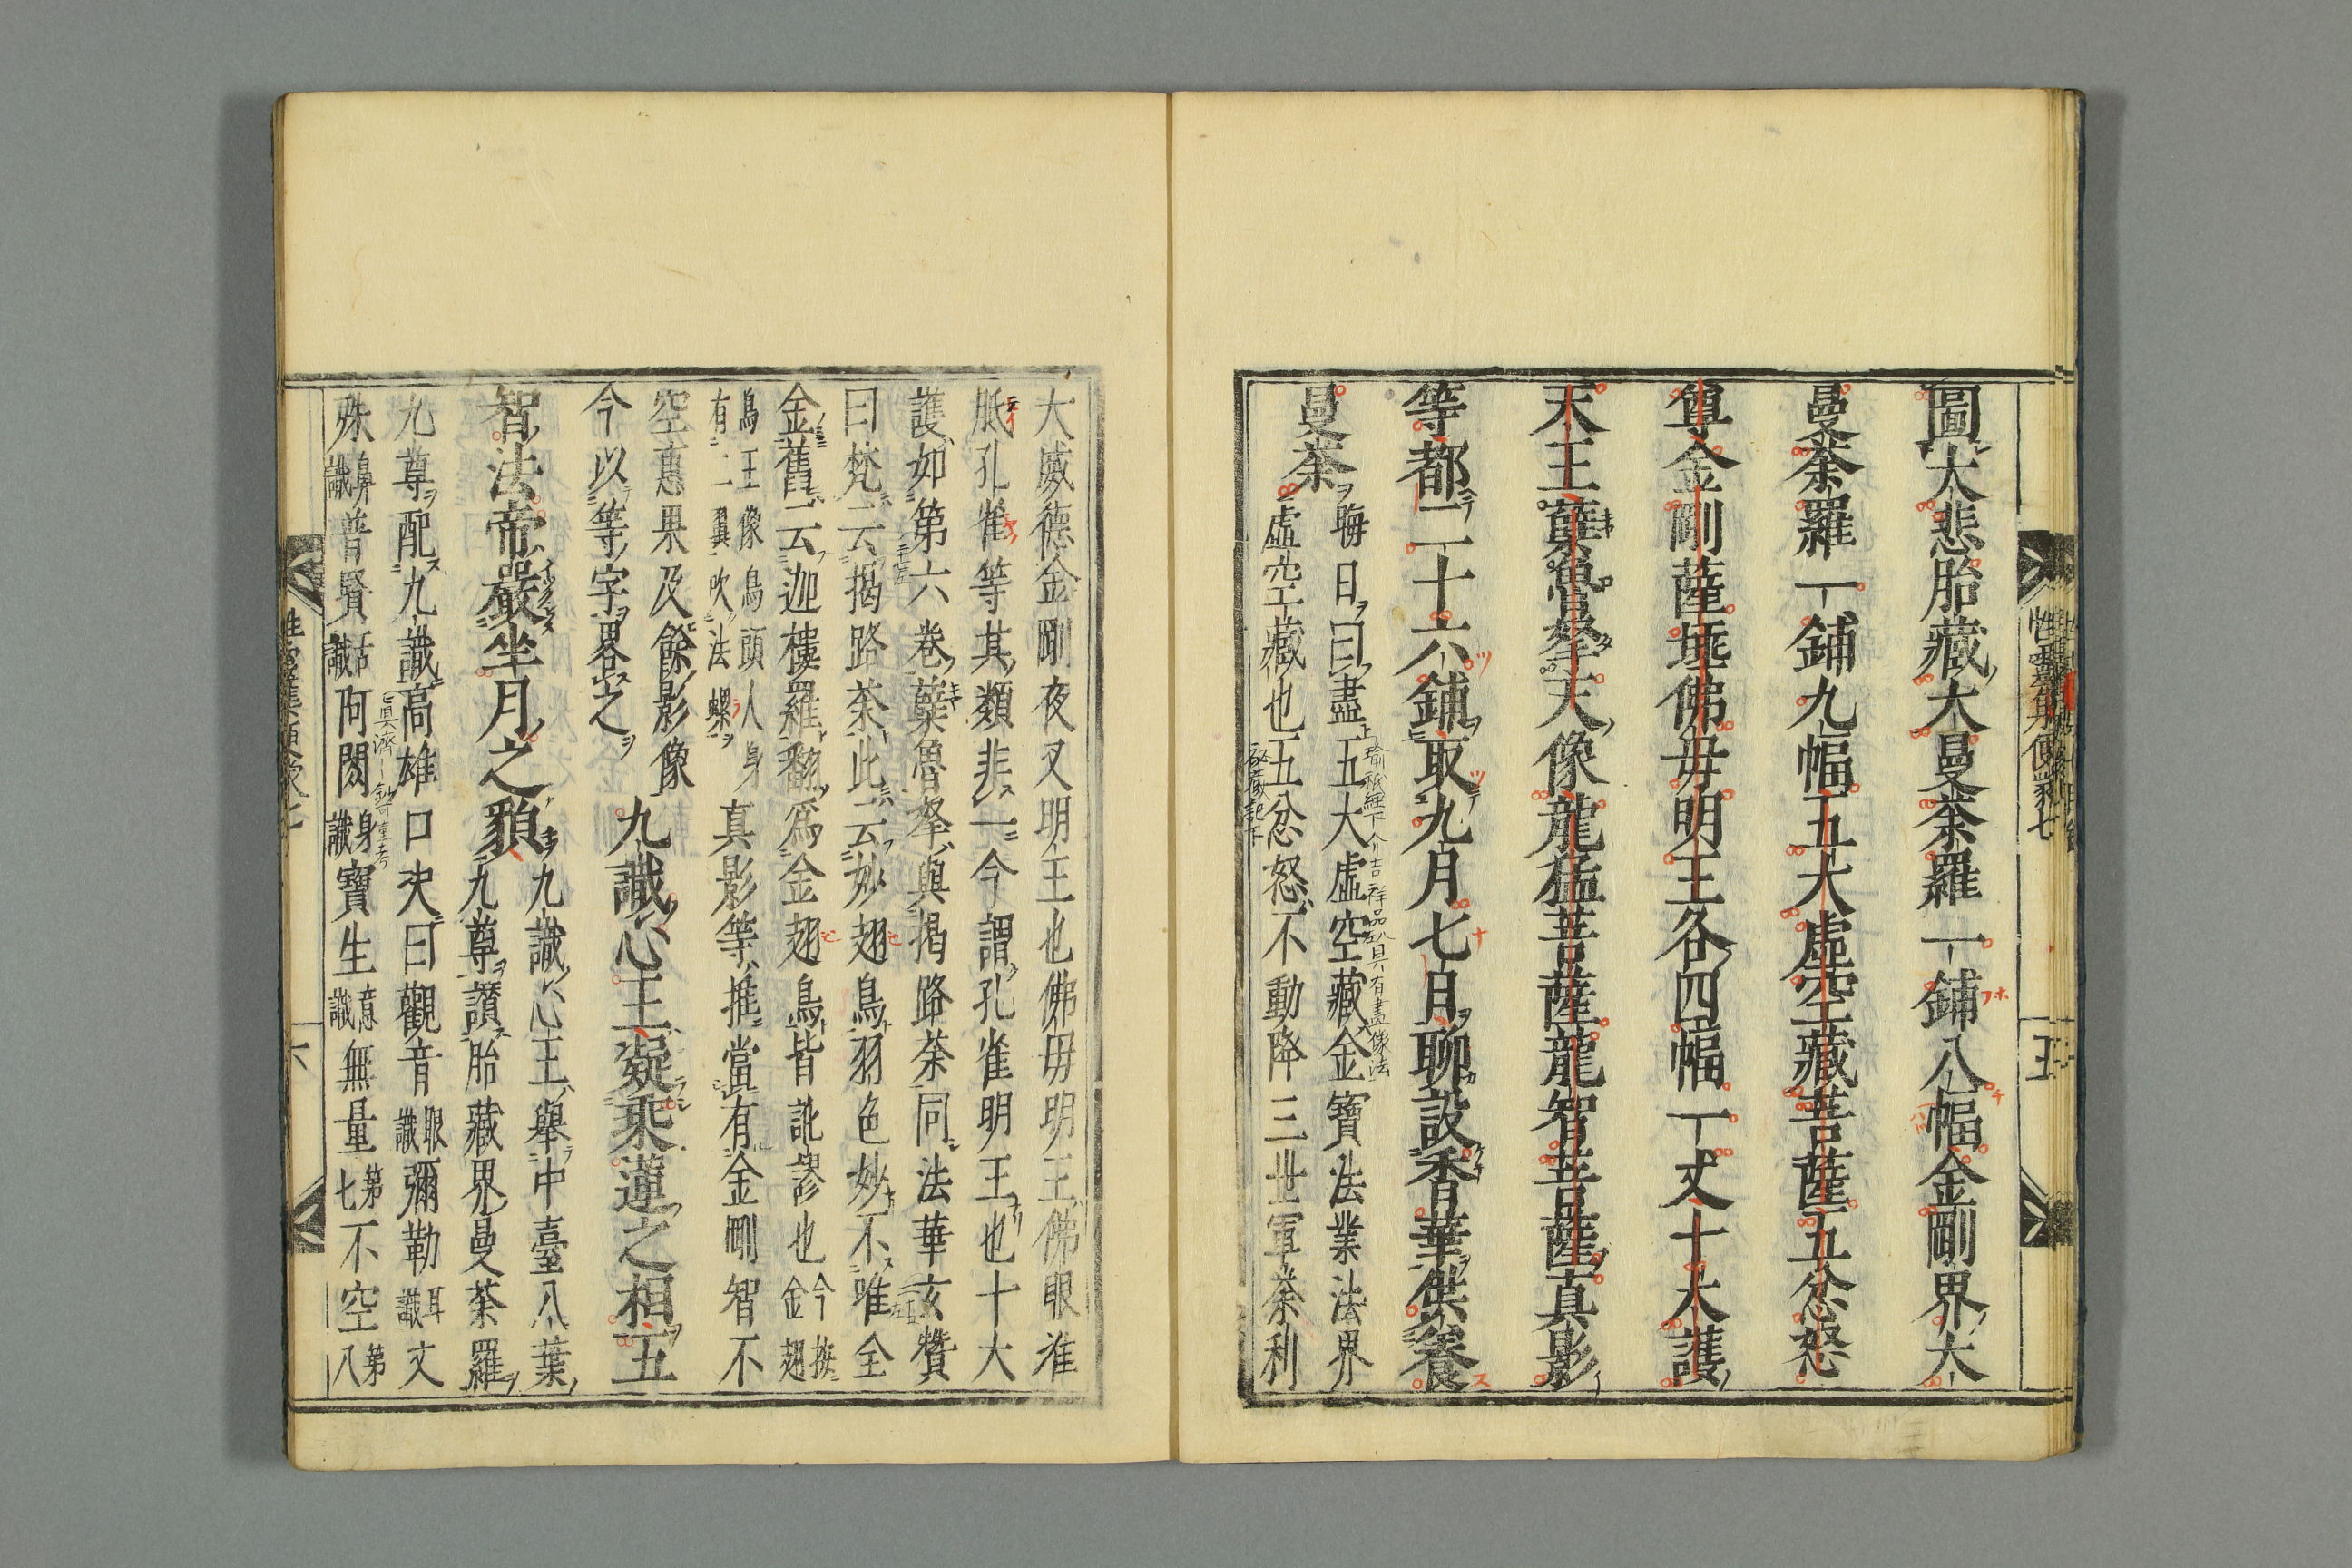 圖大悲胎藏大曼荼羅一鋪八幅金剛界大
曼荼羅一鋪九幅五大虛空藏菩薩五忿怒
尊金剛薩埵佛母明王各四幅一丈十大護
天王蘖魯拏天像龍猛菩薩龍智菩薩真影
等都二十六鋪取九月七日聊設香華供養
曼荼
晦日曰畫五大虛空藏金寶法業法界
虛空藏也五忿怒不動降三世軍荼利
性靈集便蒙七
五
大威德金剛夜叉明王也佛母明王佛眼准
胝孔雀等其類非一今謂孔雀明王也十大
護如第六卷蘖魯拏與揭路荼同法華玄贊
曰梵云揭路荼此云妙翅鳥羽色妙不唯全
金舊云迦樓羅翻為金翅鳥皆訛謬也
今按
金翅
鳥王像鳥頭人身
有二翼吹法螺
真影等推當有金剛智不
空惠果及餘影像
今以等字畧之
九識心王凝乘蓮之相五
智法帝嚴坐月之貌
九識心王舉中臺八葉
九尊讚胎藏界曼荼羅
九尊配九識高雄口決曰觀音眼識彌勒耳識文
殊鼻識普賢舌識阿閦身識寶生意識無量第七不空第八
六